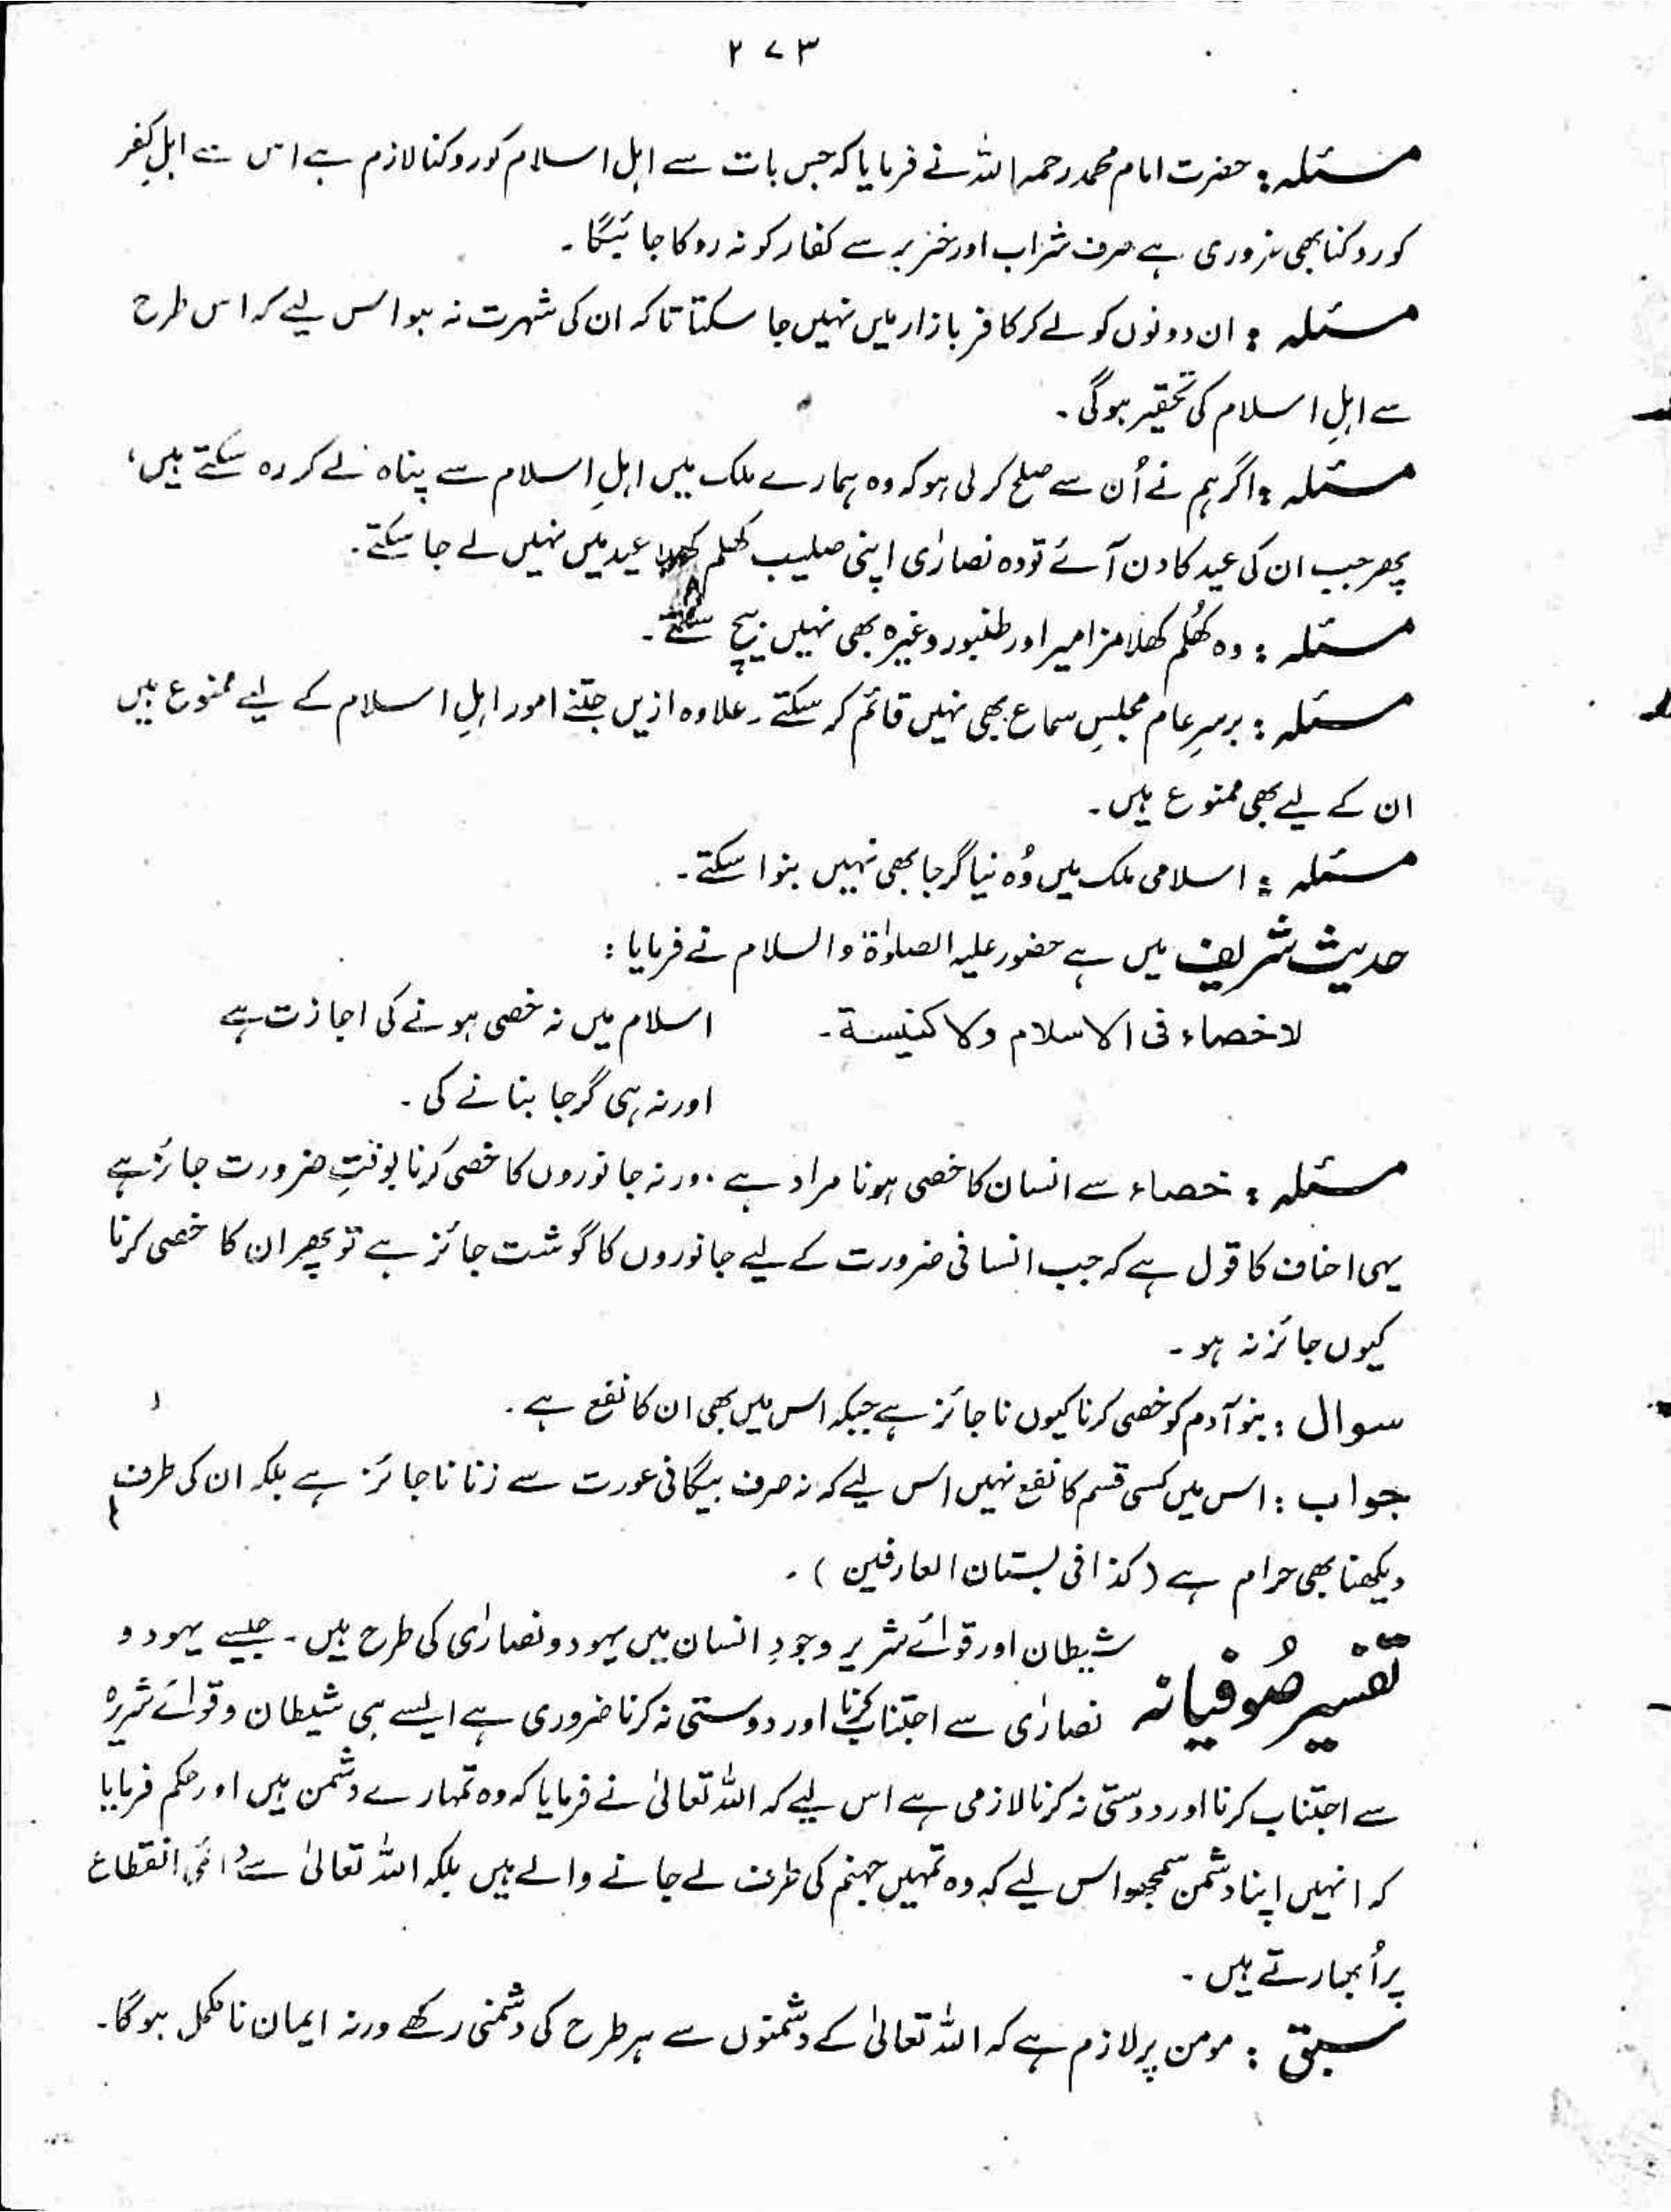 ۲۷۳
مسئلہ: حضرت امام محمد رحمہ اللہ نے فرمایا کہ جس بات سے اہل اسلام کو روکنا لازم ہے اس سے اہل کفر
کو روکنا بھی ضروری ہے صرف شراب اور خنزیر سے کفار کو نہ روکا جائیگا۔
مسئلہ: ان دونوں کو لے کر کافر بازار میں نہیں جا سکتا تاکہ ان کی شہرت نہ ہو اس لیے کہ اس طرح
سے اہلِ اسلام کی تحقیر ہوگی۔
مسئلہ: اگر ہم نے اُن سے صلح کر لی ہو کہ وہ ہمارے ملک میں اہلِ اسلام سے پناہ لے کر رہ سکتے ہیں،
پھر جب ان کی عید کا دن آئے تو وہ نصارٰی اپنی صلیب کھلم کھلا عید میں نہیں لے جا سکتے۔
مسئلہ: وہ کھُلم کھلا مزامیر اور طنبور وغیرہ بھی نہیں بیچ سکتے۔
مسئلہ: برسرِعام مجلسِ سماع بھی نہیں قائم کر سکتے۔ علاوہ ازیں جتنے امور اہلِ اسلام کے لیے ممنوع ہیں
ان کے لیے بھی ممنوع ہیں۔
مسئلہ: اسلامی ملک میں وُہ نیا گرجا بھی نہیں بنوا سکتے۔
حدیث شریف میں ہے حضور علیہ الصلوٰۃ والسلام نے فرمایا:
لا خصاء فی الاسلام ولا کنیسة۔ اسلام میں نہ خصی ہونے کی اجازت ہے
اور نہ ہی گرجا بنانے کی۔
مسئلہ: خصاء سے انسان کا خصی ہونا مراد ہے۔ ورنہ جانوروں کا خصی کرنا بوقتِ ضرورت جائز ہے
یہی احناف کا قول ہے کہ جب انسانی ضرورت کے لیے جانوروں کا گوشت جائز ہے تو پھر ان کا خصی کرنا
کیوں جائز نہ ہو۔
سوال: بنو آدم کو خصی کرنا کیوں ناجائز ہے جبکہ اس میں بھی ان کا نفع ہے۔
جواب: اس میں کسی قسم کا نفع نہیں اس لیے کہ نہ صرف بیگانی عورت سے زنا ناجائز ہے بلکہ ان کی طرف
دیکھنا بھی حرام ہے (کذا فی بستان العارفین)۔
تفسیر صُوفیانہ شیطان اور قوائے شریر وجودِ انسان میں یہود و نصارٰی کی طرح ہیں۔ جیسے یہود و
نصارٰی سے اجتناب کرنا اور دوستی نہ کرنا ضروری ہے ایسے ہی شیطان و قوائے شریرہ
سے اجتناب کرنا اور دوستی نہ کرنا لازمی ہے اس لیے کہ اللہ تعالیٰ نے فرمایا کہ وہ تمہارے دشمن ہیں اور حکم فرمایا
کہ انہیں اپنا دشمن سمجھو اس لیے کہ وہ تمہیں جہنم کی طرف لے جانے والے ہیں بلکہ اللہ تعالیٰ سے دائمی انقطاع
پر اُبھارتے ہیں۔
سبق: مومن پر لازم ہے کہ اللہ تعالیٰ کے دشمنوں سے ہر طرح کی دشمنی رکھے ورنہ ایمان نامکمل ہوگا۔